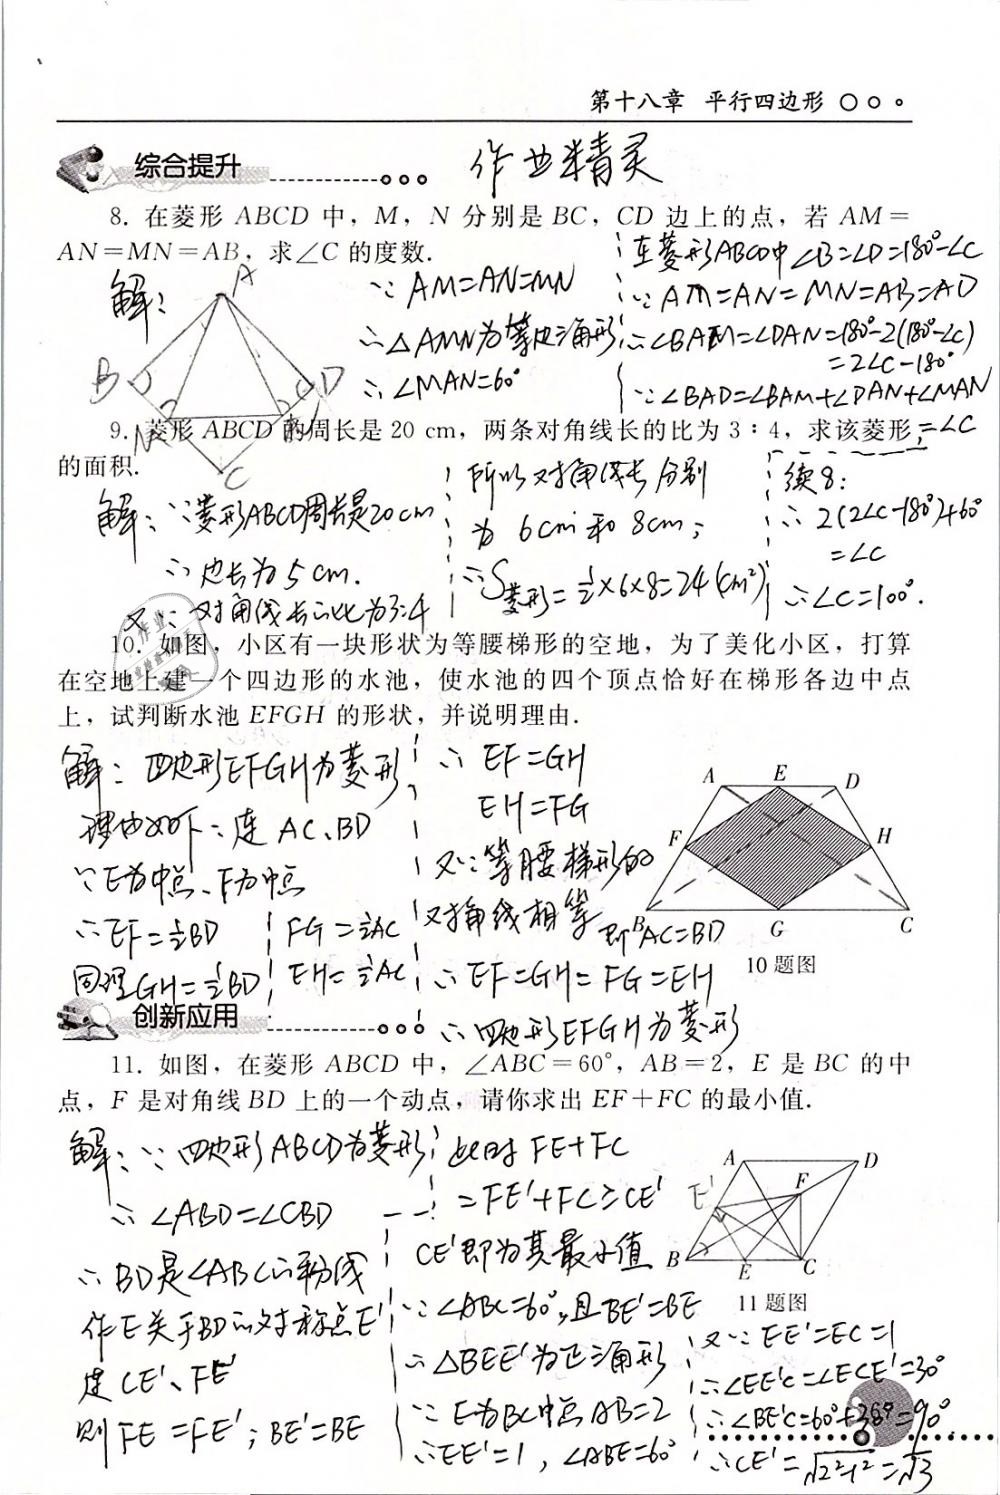 第十八章 平行四边形
综合提升
作业精灵
8. 在菱形 ABCD 中，M，N 分别是 BC，CD 边上的点，若 AM＝
AN＝MN＝AB，求∠C 的度数.
解：
A
B
D
M
N
C
∵ AM=AN=MN
∴ △AMN为等边三角形
∴ ∠MAN=60°
在菱形ABCD中 ∠B=∠D=180°-∠C
∵ AM=AN=MN=AB=AD
∴ ∠BAM=∠DAN=180°-2(180°-∠C)
=2∠C-180°
∵ ∠BAD=∠BAM+∠DAN+∠MAN
=∠C
9. 菱形 ABCD 的周长是 20 cm，两条对角线长的比为 3∶4，求该菱形
的面积.
解：∵菱形ABCD周长是20cm
∴ 边长为5cm.
又∵对角线长的比为3:4
所以对角线长分别
为 6cm 和 8cm；
∴S菱形=½×6×8=24(cm²)
续8：
∴ 2(2∠C-180°)+60°
=∠C
∴∠C=100°.
10. 如图，小区有一块形状为等腰梯形的空地，为了美化小区，打算
在空地上建一个四边形的水池，使水池的四个顶点恰好在梯形各边中点
上，试判断水池 EFGH 的形状，并说明理由.
解：四边形EFGH为菱形
理由如下：连 AC、BD
∵E为中点、F为中点
∴EF=½BD
同理GH=½BD
FG=½AC
EH=½AC
∴ EF=GH
EH=FG
又∵等腰梯形的
对角线相等 即AC=BD
∴ EF=GH=FG=EH
∴ 四边形EFGH为菱形
A E D
F H
B G C
10 题图
创新应用
11. 如图，在菱形 ABCD 中，∠ABC＝60°，AB＝2，E 是 BC 的中
点，F 是对角线 BD 上的一个动点，请你求出 EF＋FC 的最小值.
解：∵ 四边形ABCD为菱形
∴ ∠ABD=∠CBD
∴ BD是∠ABC的平分线
作E关于BD的对称点E'
连 CE'、FE'
则 FE=FE'；BE'=BE
此时 FE+FC
=FE'+FC≥CE'
CE'即为其最小值
∵ ∠ABC=60°，且BE'=BE
∴ △BEE'为正三角形
∵ E为BC中点 AB=2
∴EE'=1，∠ABE=60°
A D
E' F
B E C
11 题图
又∵ EE'=EC=1
∴∠EE'C=∠ECE'=30°
∴∠BE'C=60°+30°=90°
∴CE'=√2²-1²=√3